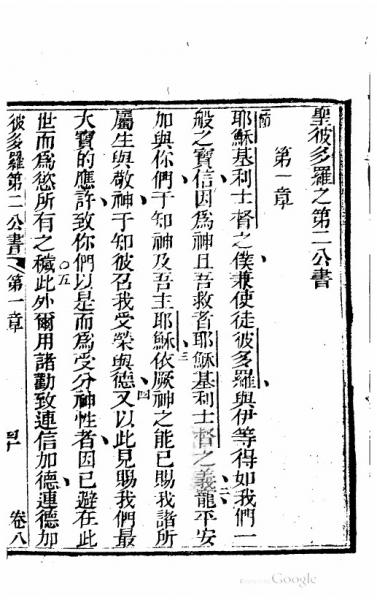 聖彼多羅之第二公書
第一章
節
耶穌基利士督之僕兼使徒彼多羅與伊等得如我們一
般之寶信因為神且吾救者耶穌基利士督之義二龍平安
加與你們于知神及吾主耶穌三依厥神之能已賜我諸所
屬生與敬神于知彼召我受榮與德四又以此見賜我們最
大寶的應許致你們以是而為受分神性者因已避在此
世而為慾所有之穢○五此外爾用諸勸致連信加德連德加
彼多羅第二公書
第一章
卷八
Google